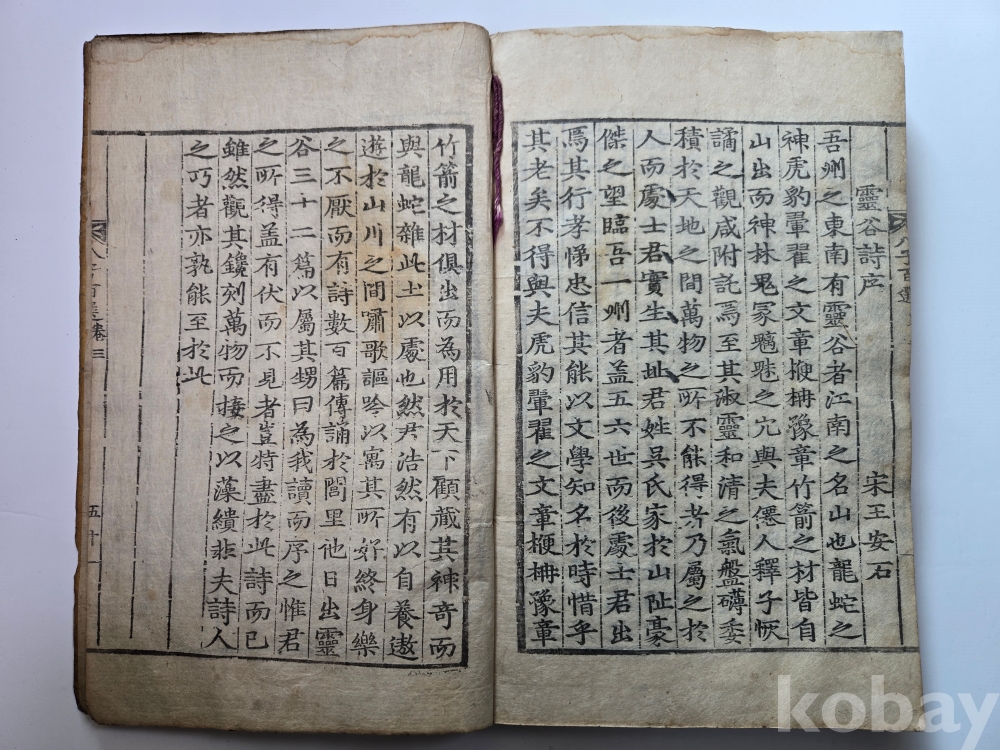 八子百選
靈谷詩序 宋王安石
吾州之東南有靈谷者江南之名山也龍蛇之
神虎豹翬翟之文章楩枏豫章竹箭之材皆自
山出而神林鬼冢魑魅之穴與夫僊人釋子恢
譎之觀咸附託焉至其淑靈和清之氣盤礴委
積於天地之間萬物之所不能得者乃屬之於
人而處士君實生其址君姓吳氏家於山阯豪
傑之望臨吾一州者盖五六世而後處士君出
焉其行孝悌忠信其能以文學知名於時惜乎
其老矣不得與夫虎豹翬翟之文章楩枏豫章
竹箭之材俱出而為用於天下顧藏其神奇而
與龍蛇雜此土以處也然君浩然有以自養遨
遊於山川之間嘯歌謳吟以寓其所好終身樂
之不厭而有詩數百篇傳誦於閭里他日出靈
谷三十二篇以屬其甥曰為我讀而序之惟君
之所得盖有伏而不見者豈特盡於此詩而已
雖然觀其鑱刻萬物而接之以藻繢非夫詩人
之巧者亦孰能至於此
八子百選卷三 五十一
kobay